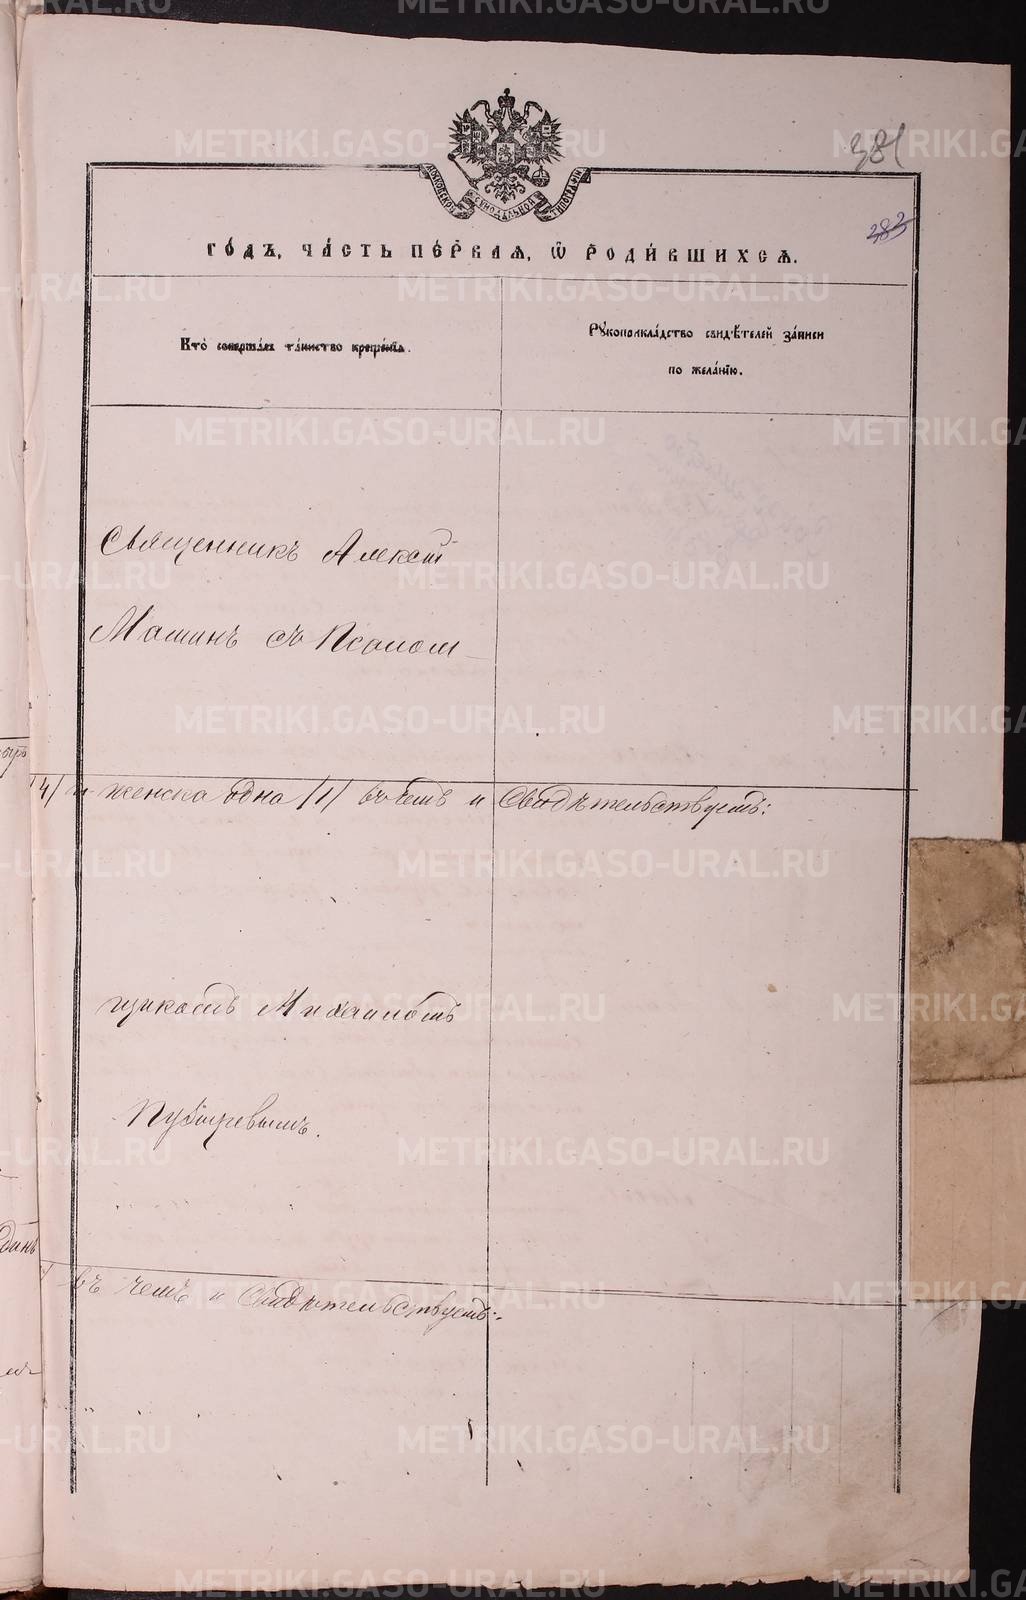 381
МОСКОВСКОЙ СУНОДАЛЬНОЙ ТИПОГРАФІИ
383
ГО́ДЪ, ЧА́СТЬ ПЕ́РВАѦ, Ѡ҆ РОДИ́ВШИХСѦ.
Кто̀ соверша́лъ та́инство креще́нїѧ.
Рꙋкоприкла́дство свидѣ́телей за́писи
по жела́нїю.
Священникъ Алексѣй
Машинъ съ Псалом-
/4/ и женска одна /1/ въ чемъ и Свидѣтельствуетъ:
щикомъ Михаиломъ
Пузыревымъ.
въ чемъ и Свидѣтельствуетъ:
METRIKI.GASO-URAL.RU